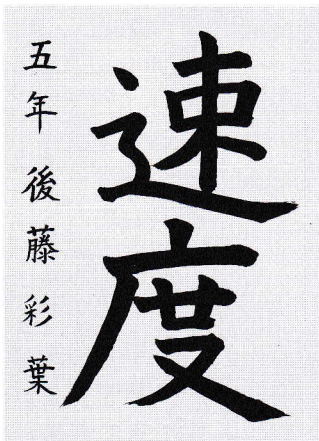 速度
五年 後藤彩葉